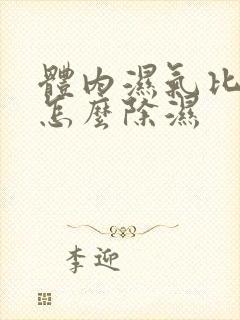 體内濕氣比
怎麼除濕
李迎